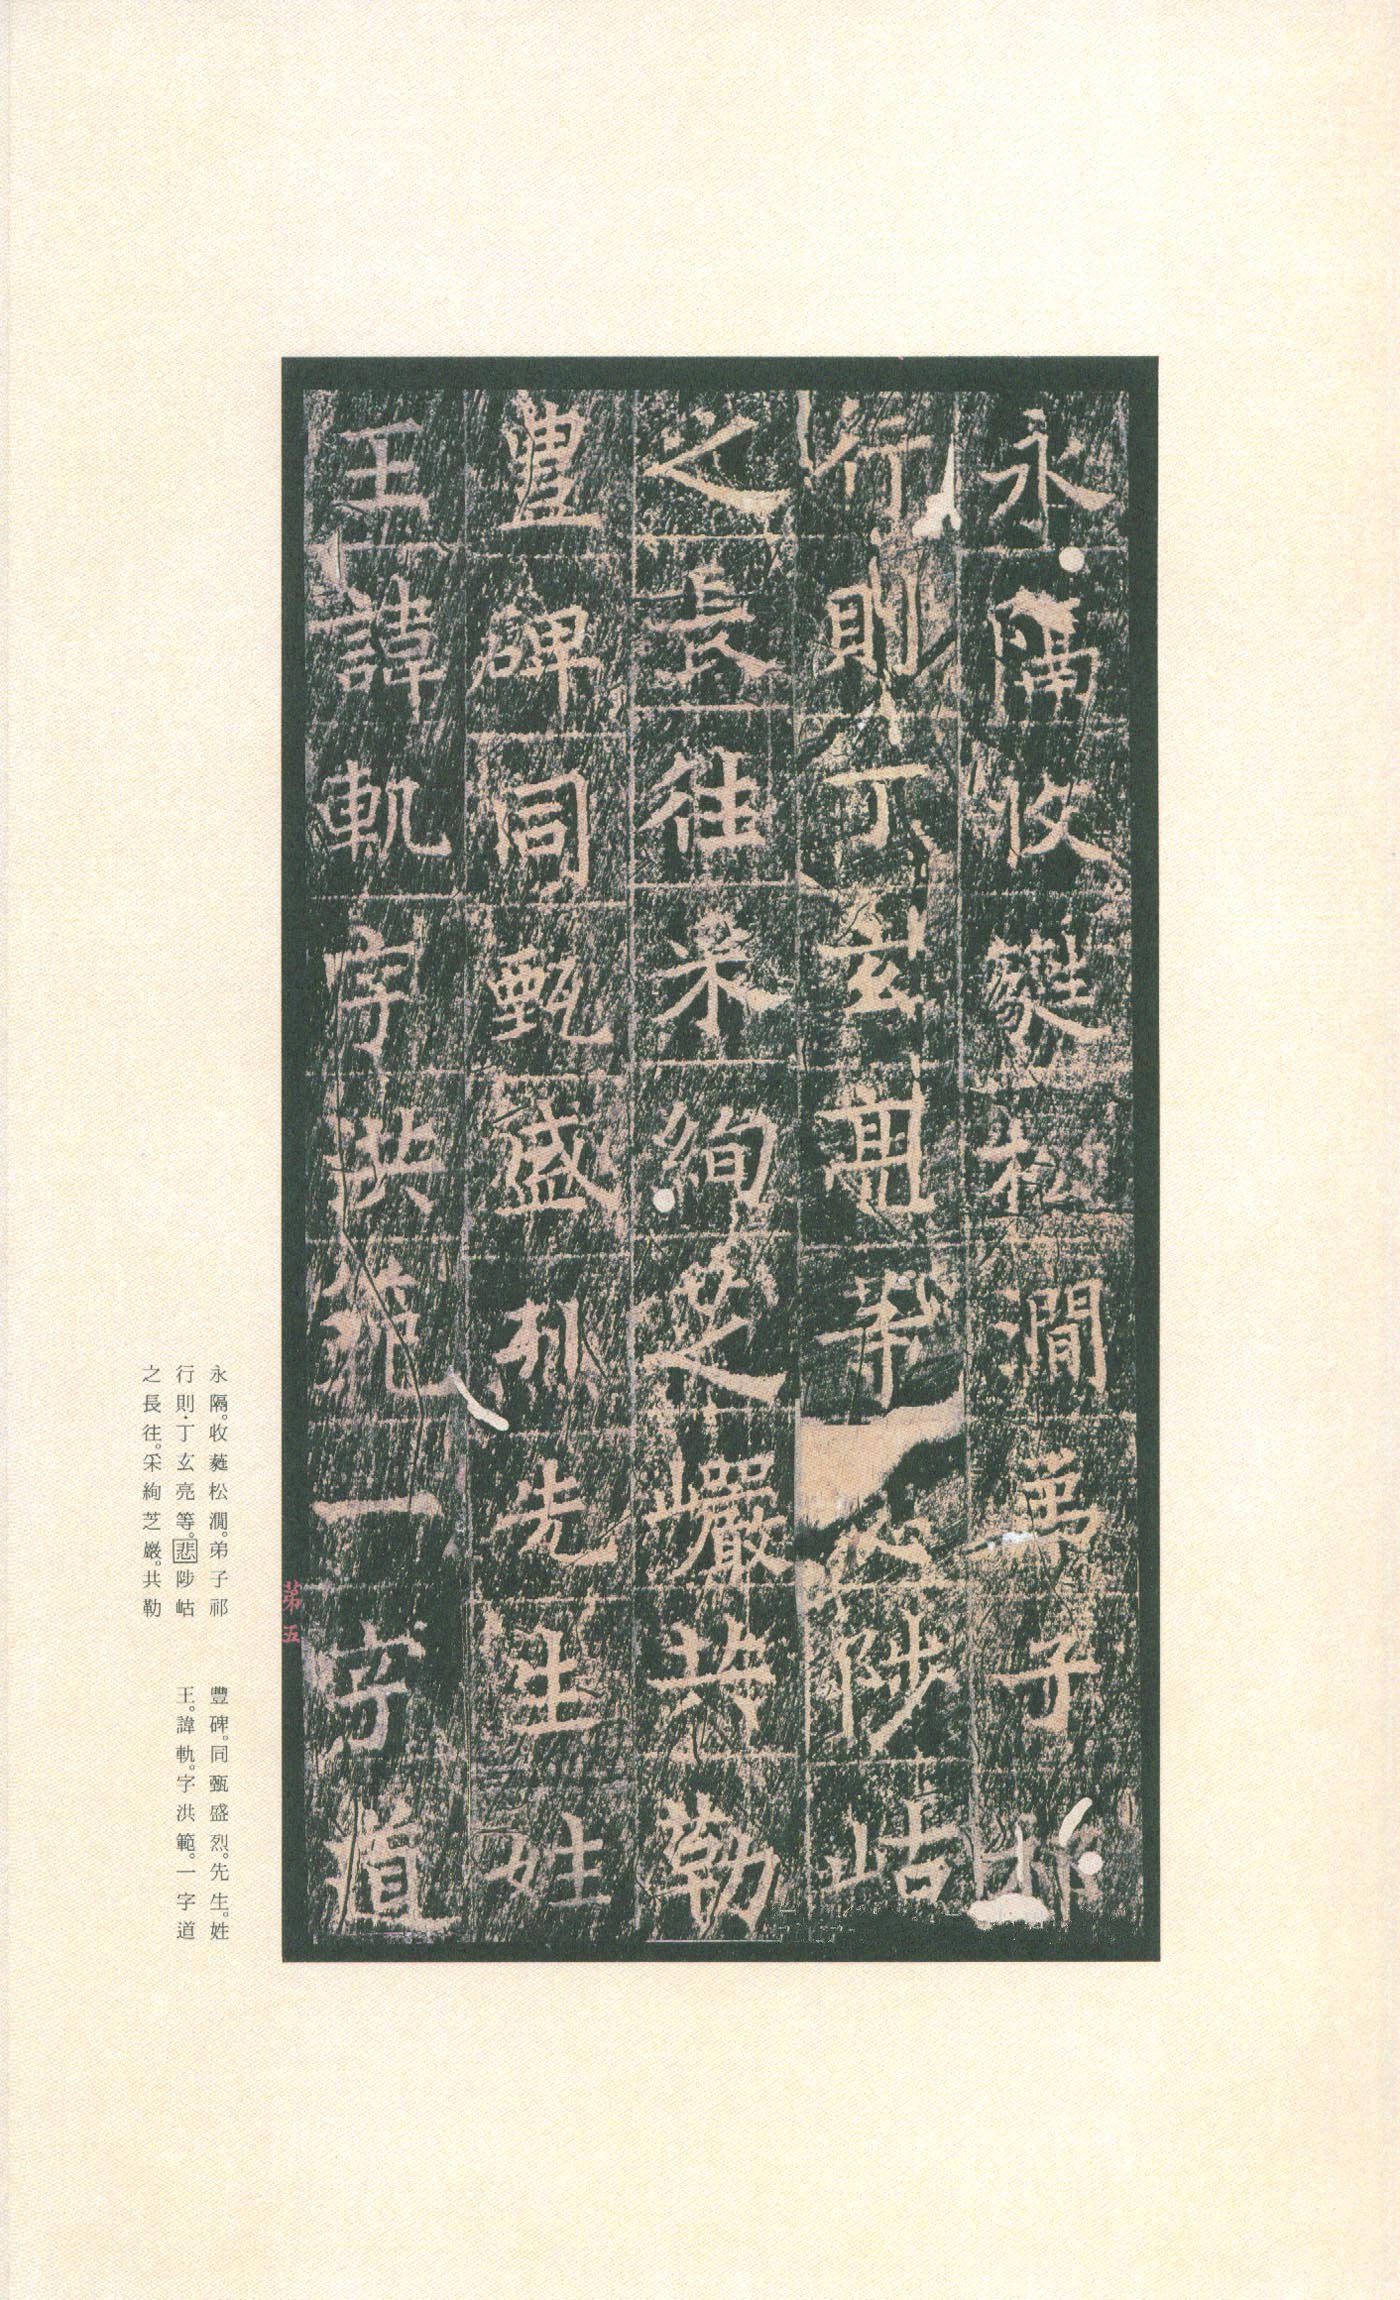 永隔收蕤松澗弟子祁
行則丁玄亮等悲陟岵
之長往采絢芝巖共勒
豐碑同甄盛烈先生姓
王諱軌字洪範一字道
第五
永隔。收蕤松澗。弟子祁
行則·丁玄亮等。悲陟岵
之長往。采絢芝巖。共勒
豐碑。同甄盛烈。先生。姓
王。諱軌。字洪範。一字道